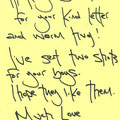 for your kind letter
and warm hug!
I've sent two shots
for your boys.
I hope they like them.
Much love